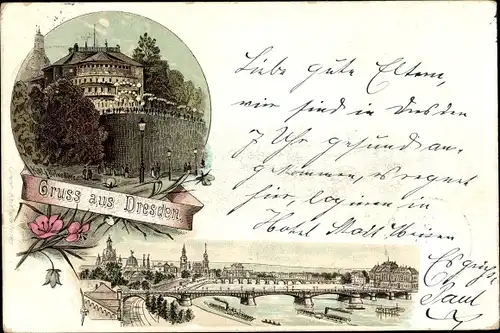 Gruss aus Dresden.
Liebe gute Eltern,
wir sind in Dresden
7 Uhr gesund an-
gekommen, es regnet
hier, logieren in
Hotel
Es grüsst
Paul